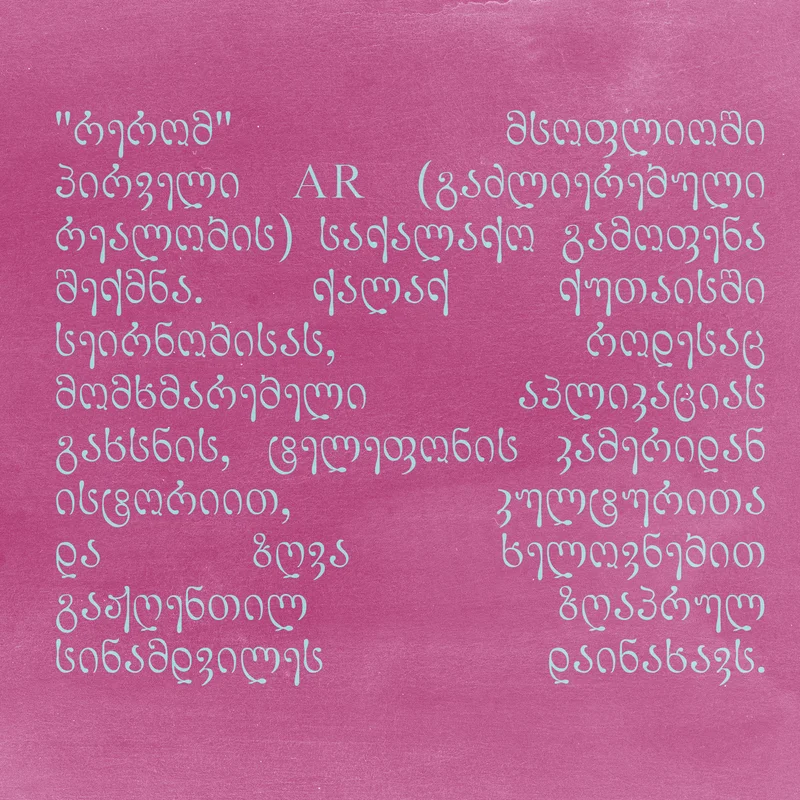 "რერომ" მსოფლიოში
პირველი AR (გამლიერებული
რეალობის) საქალაქო გამოფენა
შექმნა. ქალაქ ქუთაისში
სეირნობისას, როდესაც
მომხმარებელი აპლიკაციას
გახსნის, ტელეფონის კამერიდან
ისტორიით, კულტურითა
და ზღვა ხელოვნებით
გაჟღენთილ ზღაპრულ
სინამდვილეს დაინახავს.